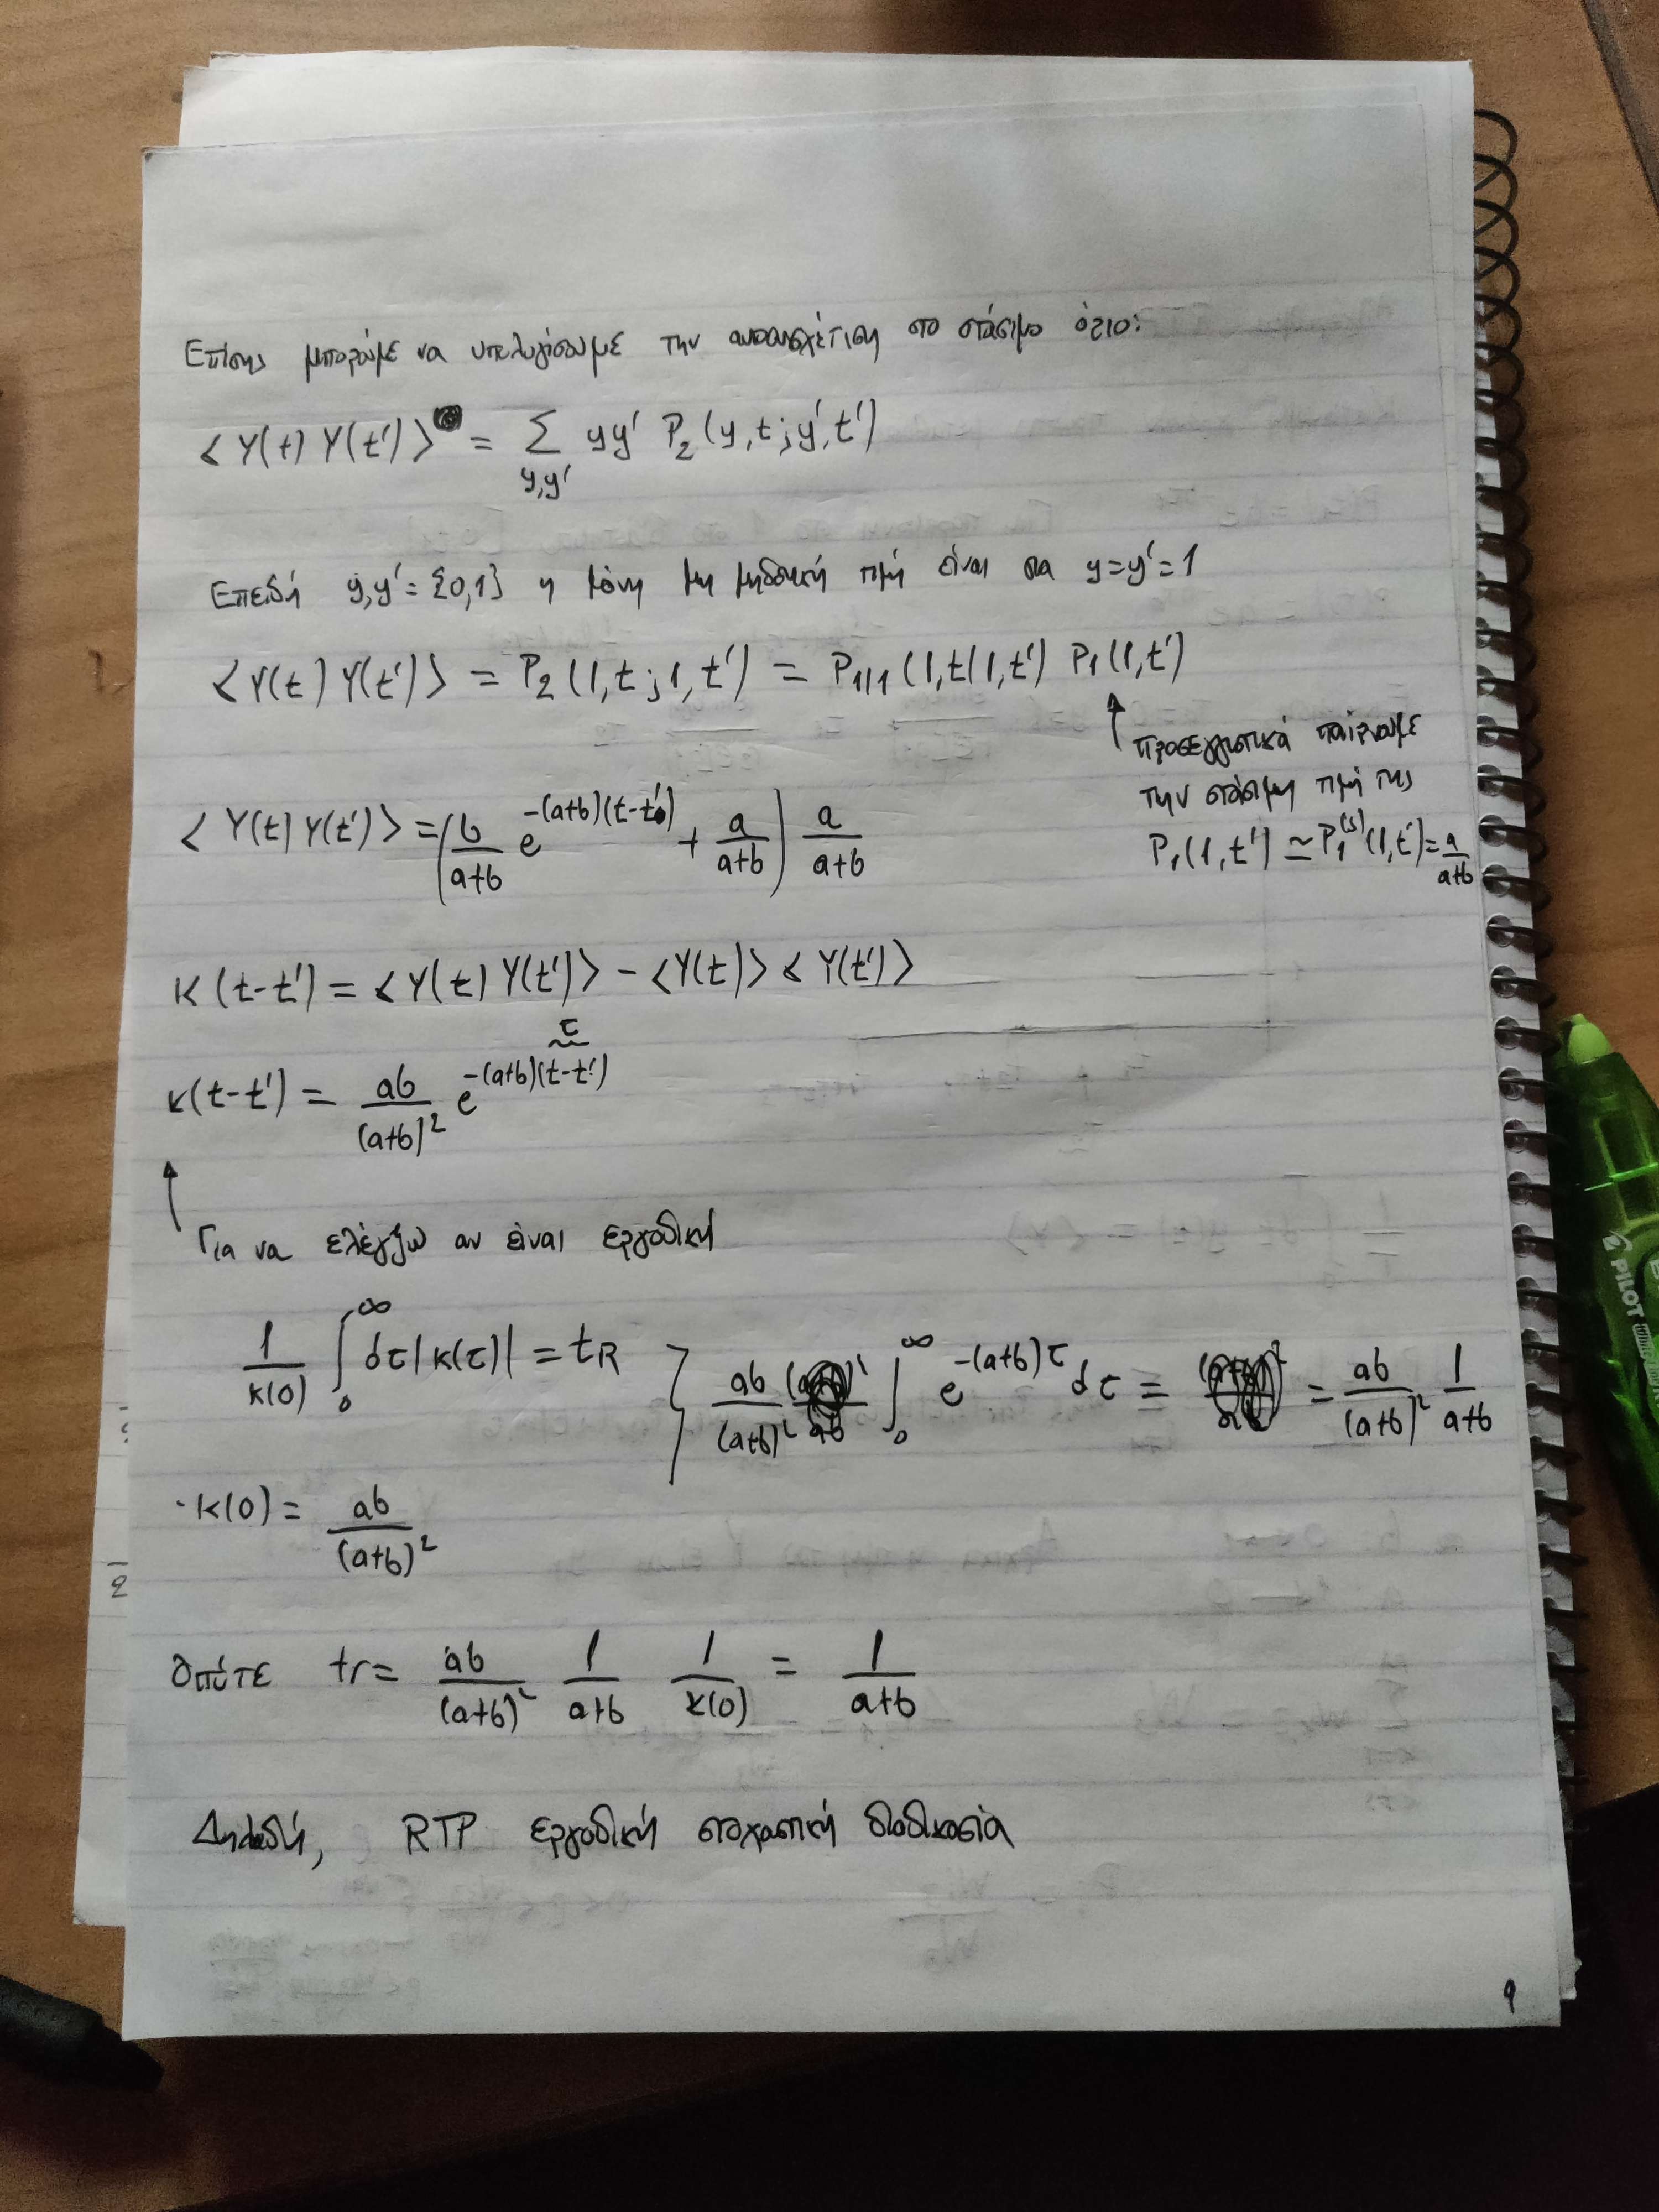 Επίσης μπορούμε να υπολογίσουμε την αυτοσυσχέτιση στο στάσιμο όριο:
<Y(t) Y(t')> = Σ_{y,y'} yy' P₂(y,t;y',t')
Επειδή y,y'={0,1} η μόνη μη μηδενική τιμή είναι για y=y'=1
<Y(t) Y(t')> = P₂(1,t;1,t') = P₁|₁(1,t|1,t') P₁(1,t')
↑ προσεγγιστικά παίρνουμε
την στάσιμη τιμή της
P₁(1,t') ≃ P₁^(s)(1,t') = a/(a+b)
<Y(t) Y(t')> = (b/(a+b) e^{-(a+b)(t-t')} + a/(a+b)) a/(a+b)
κ(t-t') = <Y(t) Y(t')> - <Y(t)> <Y(t')>
τ
κ(t-t') = ab/(a+b)² e^{-(a+b)(t-t')}
↑ Για να ελέγξω αν είναι εργοδική
1/κ(0) ∫₀^∞ dτ|κ(τ)| = tR } ab/(a+b)² ∫₀^∞ e^{-(a+b)τ} dτ = = ab/(a+b)² 1/(a+b)
·κ(0) = ab/(a+b)²
Οπότε tr = ab/(a+b)² 1/(a+b) 1/κ(0) = 1/(a+b)
Δηλαδή, RTP εργοδική στοχαστική διαδικασία
9
PILOT